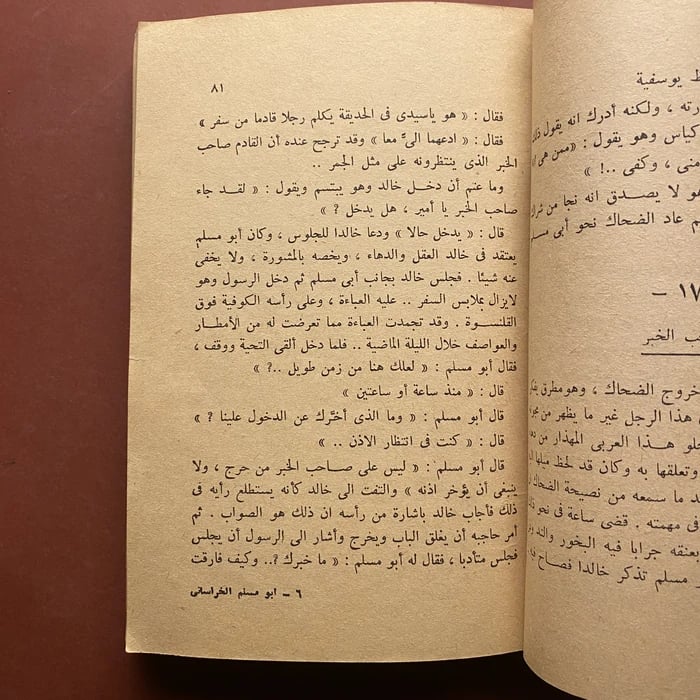 ظ يوسفية
رته ، ولكنه أدرك انه يقول ذلك
كياس وهو يقول : «ممن هى
منى ، وكفى ..! »
هو لا يصدق انه نجا من شراك
م عاد الضحاك نحو أبى مسلم
١٧ –
ب الخبر
خروج الضحاك ، وهو مطرق يفكر
هذا الرجل غير ما يظهر من
هذا العربى المهذار من
وتعلقها به وكان قد لحظ ميلها
د ما سمعه من نصيحة الضحاك
فى مهمته . قضى ساعة فى نحو
بعنقه جرابا فيه البخور
مسلم تذكر خالدا فصاح
٨١
فقال : « هو ياسيدى فى الحديقة يكلم رجلا قادما من سفر »
فقال : « ادعهما الىَّ معا » وقد ترجح عنده أن القادم صاحب
الخبر الذى ينتظرونه على مثل الجمر ..
وما عتم أن دخل خالد وهو يبتسم ويقول : « لقد جاء
صاحب الخبر يا أمير ، هل يدخل ? »
قال : « يدخل حالا » ودعا خالدا للجلوس ، وكان أبو مسلم
يعتقد فى خالد العقل والدهاء ، ويخصه بالمشورة ، ولا يخفى
عنه شيئا . فجلس خالد بجانب أبى مسلم ثم دخل الرسول وهو
لايزال بملابس السفر .. عليه العباءة ، وعلى رأسه الكوفية فوق
القلنسوة . وقد تجمدت العباءة مما تعرضت له من الأمطار
والعواصف خلال الليلة الماضية .. فلما دخل ألقى التحية ووقف ،
فقال أبو مسلم : « لعلك هنا من زمن طويل ..? »
قال : « منذ ساعة أو ساعتين »
قال أبو مسلم : « وما الذى أخَّرك عن الدخول علينا ? »
قال : « كنت فى انتظار الاذن .. »
قال أبو مسلم : « ليس على صاحب الخبر من حرج ، ولا
ينبغى أن يؤخر اذنه » والتفت الى خالد كأنه يستطلع رأيه فى
ذلك فأجاب خالد باشارة من رأسه ان ذلك هو الصواب . ثم
أمر حاجبه أن يغلق الباب ويخرج وأشار الى الرسول أن يجلس
فجلس متأدبا ، فقال له أبو مسلم : « ما خبرك ?.. وكيف فارقت
٦ – ابو مسلم الخراسانى